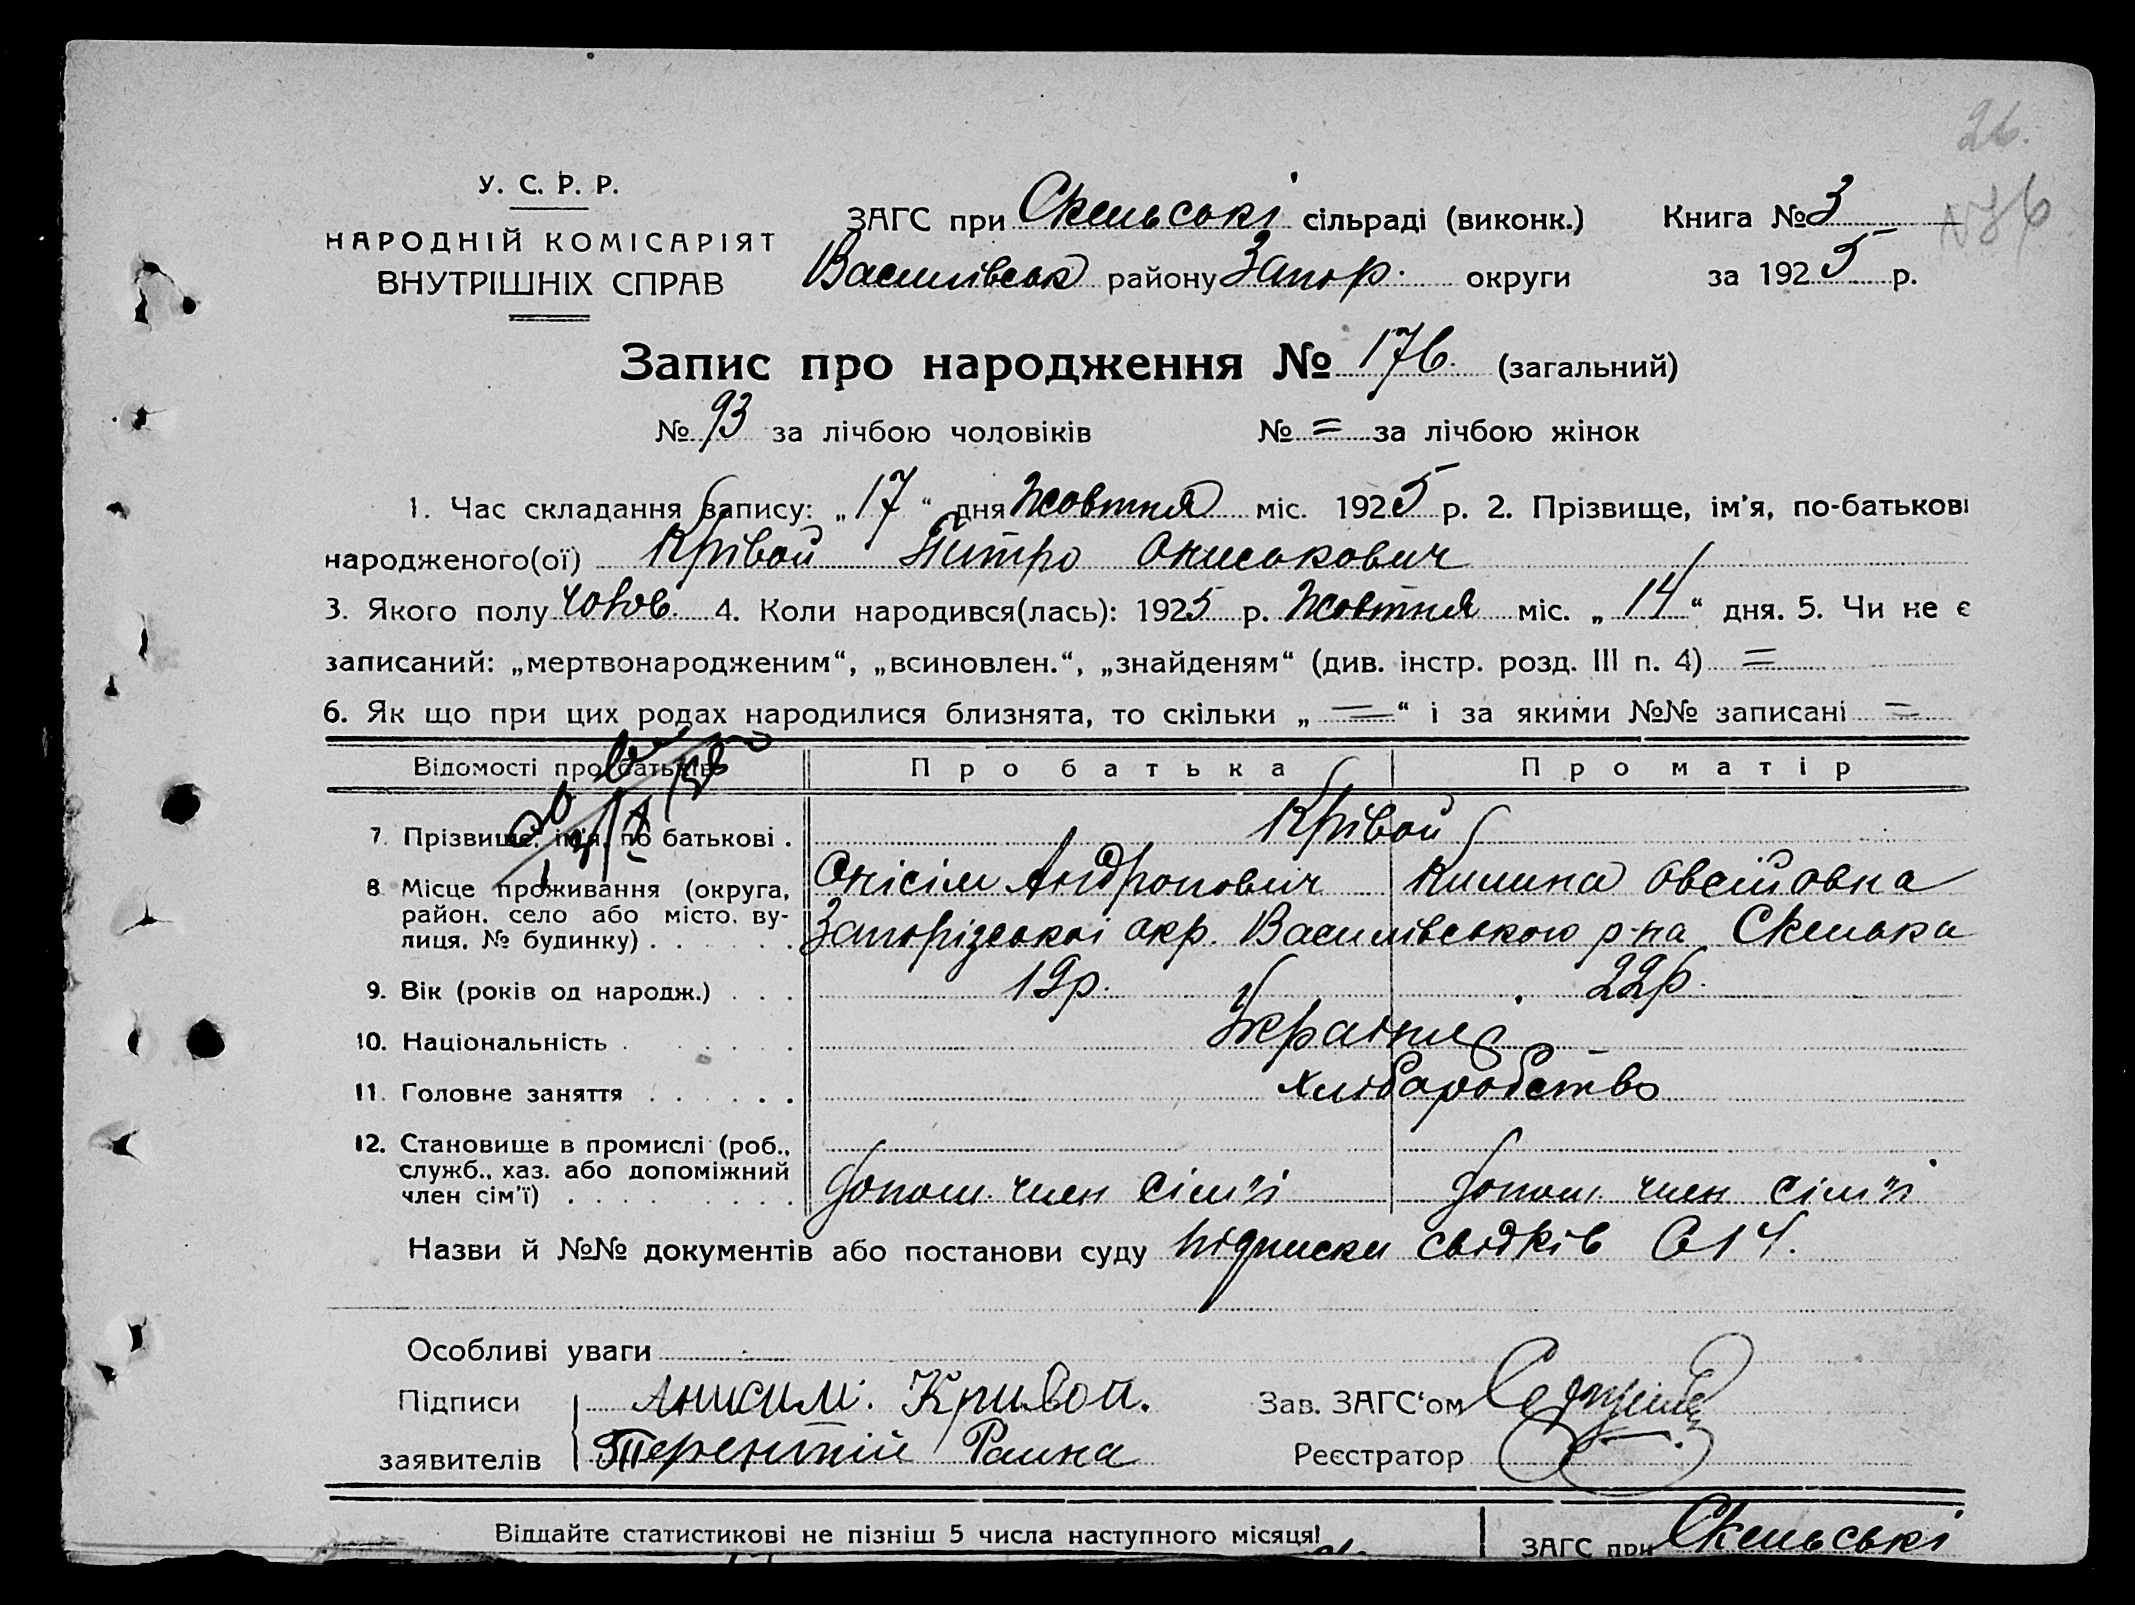 26.
У. С. Р. Р.
НАРОДНІЙ КОМІСАРІЯТ
ВНУТРІШНІХ СПРАВ
ЗАГС при Скельські сільраді (виконк.) Книга № 3
Василівськ району Запор. округи за 1925 р.
Запис про народження № 176. (загальний)
№ 93 за лічбою чоловіків № = за лічбою жінок
1. Час складання запису: „17“ дня Жовтня міс. 1925 р. 2. Прізвище, ім'я, по-батькові
народженого(ої) Крівой Питро Ониськович
3. Якого полу чолов. 4. Коли народився(лась): 1925 р. Жовтня міс. „14“ дня. 5. Чи не є
записаний: „мертвонародженим“, „всиновлен.“, „знайденям“ (див. інстр. розд. III п. 4) =
6. Як що при цих родах народилися близнята, то скільки „=“ і за якими №№ записані =
Відомості про батьків Про батька Про матір
7. Прізвище, ім'я, по батькові . Крівой
Онісім Андронович Килина Овсійовна
8. Місце проживання (округа,
район, село або місто, ву-
лиця, № будинку) . . . . . Запорізської окр. Василівського р-на Скелька
9. Вік (років од народж.) . . . 19р. 22р.
10. Національність . . . . . Українці
11. Головне заняття . . . . . . Хліборобство
12. Становище в промислі (роб.,
служб., хаз. або допоміжний
член сім'ї) . . . . . . . . допом. член сім'ї допом. член сім'ї
Назви й №№ документів або постанови суду підписки свідків
Особливі уваги
Підписи Анисим. Кривой. Зав. ЗАГС'ом
заявителів Терентій Раина Реєстратор
Віддайте статистикові не пізніш 5 числа наступного місяця! ЗАГС при Скельські